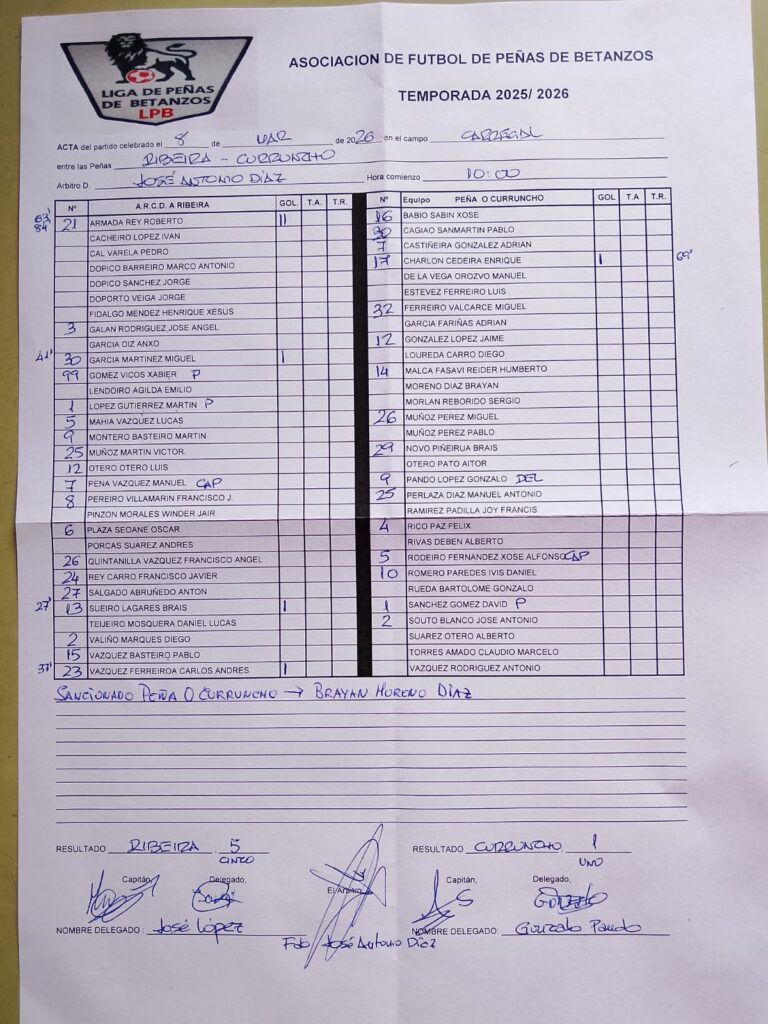 LIGA DE PEÑAS
DE BETANZOS
LPB
ASOCIACION DE FUTBOL DE PEÑAS DE BETANZOS
TEMPORADA 2025/ 2026
ACTA del partido celebrado el 8 de MAR de 2026 en el campo CARREGAL
entre las Peñas RIBEIRA - CURRUNCHO
Arbitro D. JOSÉ ANTONIO DÍAZ Hora comienzo 10:00
Nº A.R.C.D. A RIBEIRA GOL. T.A. T.R.
63' 84' 21 ARMADA REY ROBERTO II
CACHEIRO LOPEZ IVAN
CAL VARELA PEDRO
DOPICO BARREIRO MARCO ANTONIO
DOPICO SANCHEZ JORGE
DOPORTO VEIGA JORGE
FIDALGO MENDEZ HENRIQUE XESUS
3 GALAN RODRIGUEZ JOSE ANGEL
GARCIA DIZ ANXO
41' 30 GARCIA MARTINEZ MIGUEL I
99 GOMEZ VICOS XABIER P
LENDOIRO AGILDA EMILIO
1 LOPEZ GUTIERREZ MARTIN P
5 MAHIA VAZQUEZ LUCAS
9 MONTERO BASTEIRO MARTIN
25 MUÑOZ MARTIN VICTOR
12 OTERO OTERO LUIS
7 PENA VAZQUEZ MANUEL CAP
8 PEREIRO VILLAMARIN FRANCISCO J.
PINZON MORALES WINDER JAIR
6 PLAZA SEOANE OSCAR
PORCAS SUAREZ ANDRES
26 QUINTANILLA VAZQUEZ FRANCISCO ANGEL
24 REY CARRO FRANCISCO JAVIER
27 SALGADO ABRUÑEDO ANTON
27' 13 SUEIRO LAGARES BRAIS I
TEIJEIRO MOSQUERA DANIEL LUCAS
2 VALIÑO MARQUES DIEGO
15 VAZQUEZ BASTEIRO PABLO
37' 23 VAZQUEZ FERREIROA CARLOS ANDRES I
Nº Equipo PEÑA O CURRUNCHO GOL T.A T.R.
16 BABIO SABIN XOSE
30 CAGIAO SANMARTIN PABLO
7 CASTIÑEIRA GONZALEZ ADRIAN
17 CHARLON CEDEIRA ENRIQUE I 69'
DE LA VEGA OROZVO MANUEL
ESTEVEZ FERREIRO LUIS
32 FERREIRO VALCARCE MIGUEL
GARCIA FARIÑAS ADRIAN
12 GONZALEZ LOPEZ JAIME
LOUREDA CARRO DIEGO
14 MALCA FASAVI REIDER HUMBERTO
MORENO DIAZ BRAYAN
MORLAN REBORIDO SERGIO
26 MUÑOZ PEREZ MIGUEL
MUÑOZ PEREZ PABLO
29 NOVO PIÑEIRUA BRAIS
OTERO PATO AITOR
9 PANDO LOPEZ GONZALO DEL
25 PERLAZA DIAZ MANUEL ANTONIO
RAMIREZ PADILLA JOY FRANCIS
4 RICO PAZ FELIX
RIVAS DEBEN ALBERTO
5 RODEIRO FERNANDEZ XOSE ALFONSO CAP
10 ROMERO PAREDES IVIS DANIEL
RUEDA BARTOLOME GONZALO
1 SANCHEZ GOMEZ DAVID P
2 SOUTO BLANCO JOSE ANTONIO
SUAREZ OTERO ALBERTO
TORRES AMADO CLAUDIO MARCELO
VAZQUEZ RODRIGUEZ ANTONIO
SANCIONADO PEÑA O CURRUNCHO → BRAYAN MORENO DÍAZ
RESULTADO RIBEIRA 5
CINCO
RESULTADO CURRUNCHO 1
UNO
Capitán, Delegado,
El Arbitro
Capitán, Delegado,
NOMBRE DELEGADO: José López
Fdo José Antonio Díaz
NOMBRE DELEGADO: Gonzalo Pando